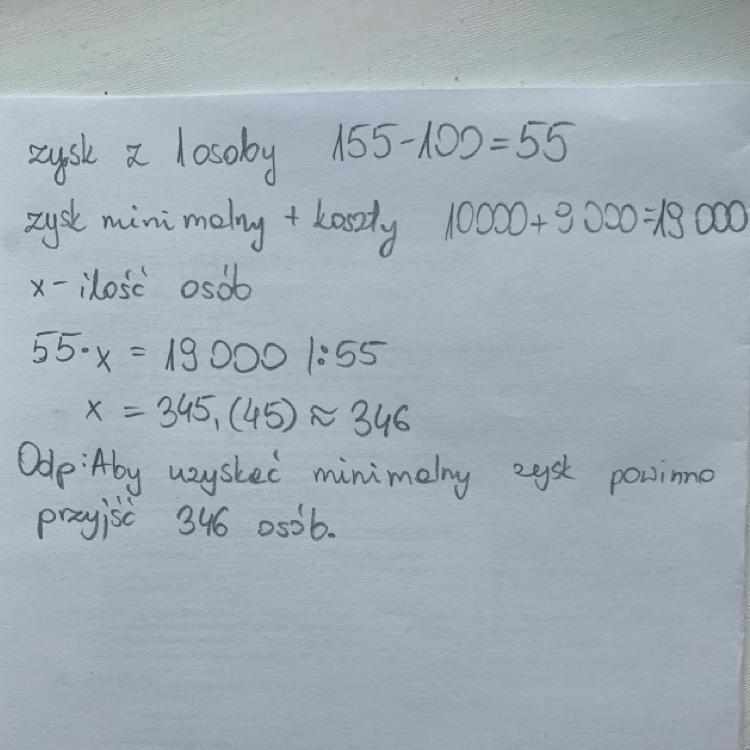 zysk z 1 osoby 155-100=55
zysk minimalny + koszty 10000+9 000=19 000
x - ilość osób
55·x = 19 000 /:55
x = 345,(45) ≈ 346
Odp: Aby uzyskać minimalny zysk powinno
przyjść 346 osób.